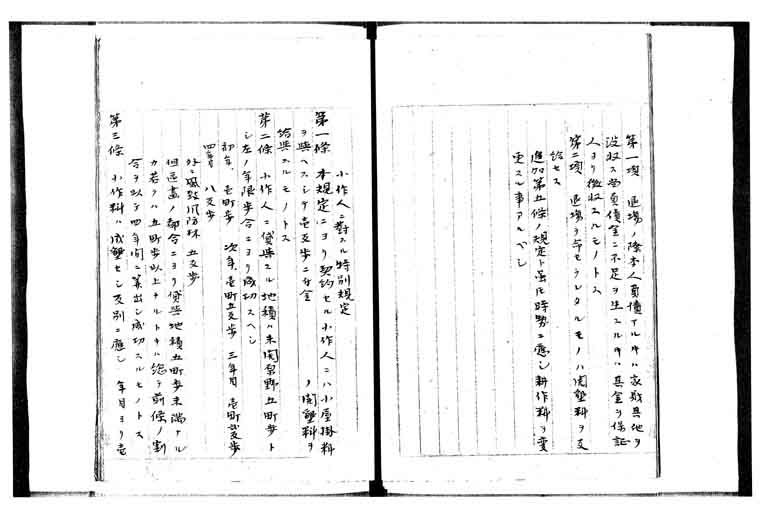 第一項 退場ノ際本人負債アルキハ家敷其他ヲ
没収ス尚負債金ニ不足ヲ生スルキハ其金ヲ保証
人ヨリ徴収スルモノトス
第二項 退場ヲ命セラレタルモノハ開墾料ヲ支
給セス
追加第五條ノ規定ト虽モ時勢ニ應シ耕作料ヲ変
更スル事アルベシ
小作人ニ對スル特別規定
第一條 本規定ニヨリ契約セル小作人ニハ小屋掛料
ヲ與ヘスシテ壱反歩ニ付金 ノ開墾料ヲ
給與スルモノトス
第二條 小作人ニ貸與スル地積ハ未開梨野五町歩ト
シ左ノ年限歩合ニヨリ成功スヘシ
初年 壱町歩 次年 壱町五反歩 三年目 壱町弐反歩
四年目 八反歩
外ニ風致風防林 五反歩
但区画ノ都合ニヨリ貸與地積五町歩未満ナル
カ若クハ五町歩以上ナルトキハ總テ前條ノ割
合ヲ以テ四年間ニ算出シ成功スルモノトス
第三條 小作料ハ成墾セシ反別ニ應シ 年目ヨリ壱